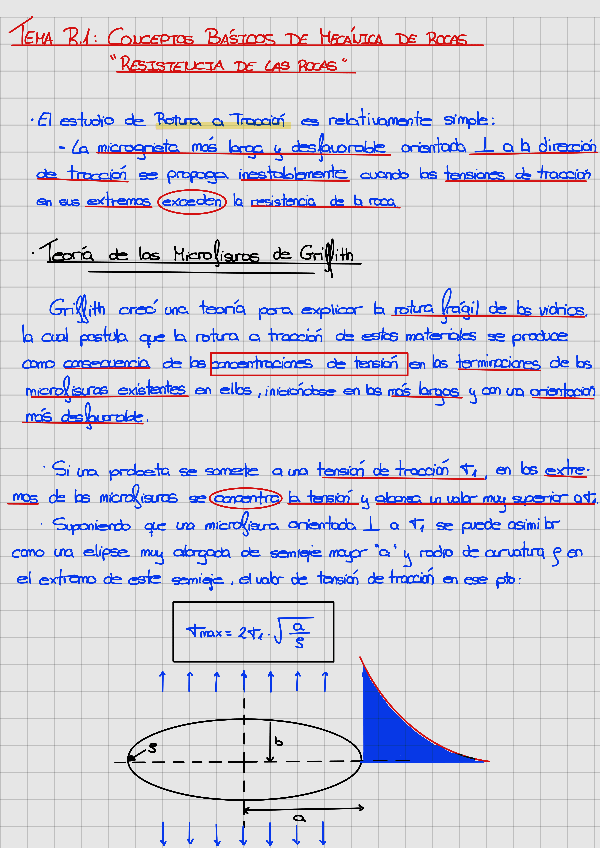 TEMA R.1: CONCEPTOS BÁSICOS DE MECÁNICA DE ROCAS
"RESISTENCIA DE LAS ROCAS"
· El estudio de Rotura a Tracción es relativamente simple:
- La microgrieta más larga y desfavorable orientada ⊥ a la dirección
de tracción se propaga inestablemente cuando las tensiones de tracción
en sus extremos exceden la resistencia de la roca
· Teoría de las Microfisuras de Griffith
Griffith creó una teoría para explicar la rotura frágil de los vidrios,
la cual postula que la rotura a tracción de estos materiales se produce
como consecuencia de las concentraciones de tensión en las terminaciones de las
microfisuras existentes en ellos, iniciándose en las más largas y con una orientación
más desfavorable.
· Si una probeta se somete a una tensión de tracción σ1, en los extre-
mos de las microfisuras se concentra la tensión y alcanza un valor muy superior a σ1.
· Suponiendo que una microfisura orientada ⊥ a σ1 se puede asimilar
como una elipse muy alargada de semieje mayor "a" y radio de curvatura ρ en
el extremo de este semieje, el valor de tensión de tracción en ese pto:
σmax = 2σ1 · √(a/ρ)
ρ
b
a